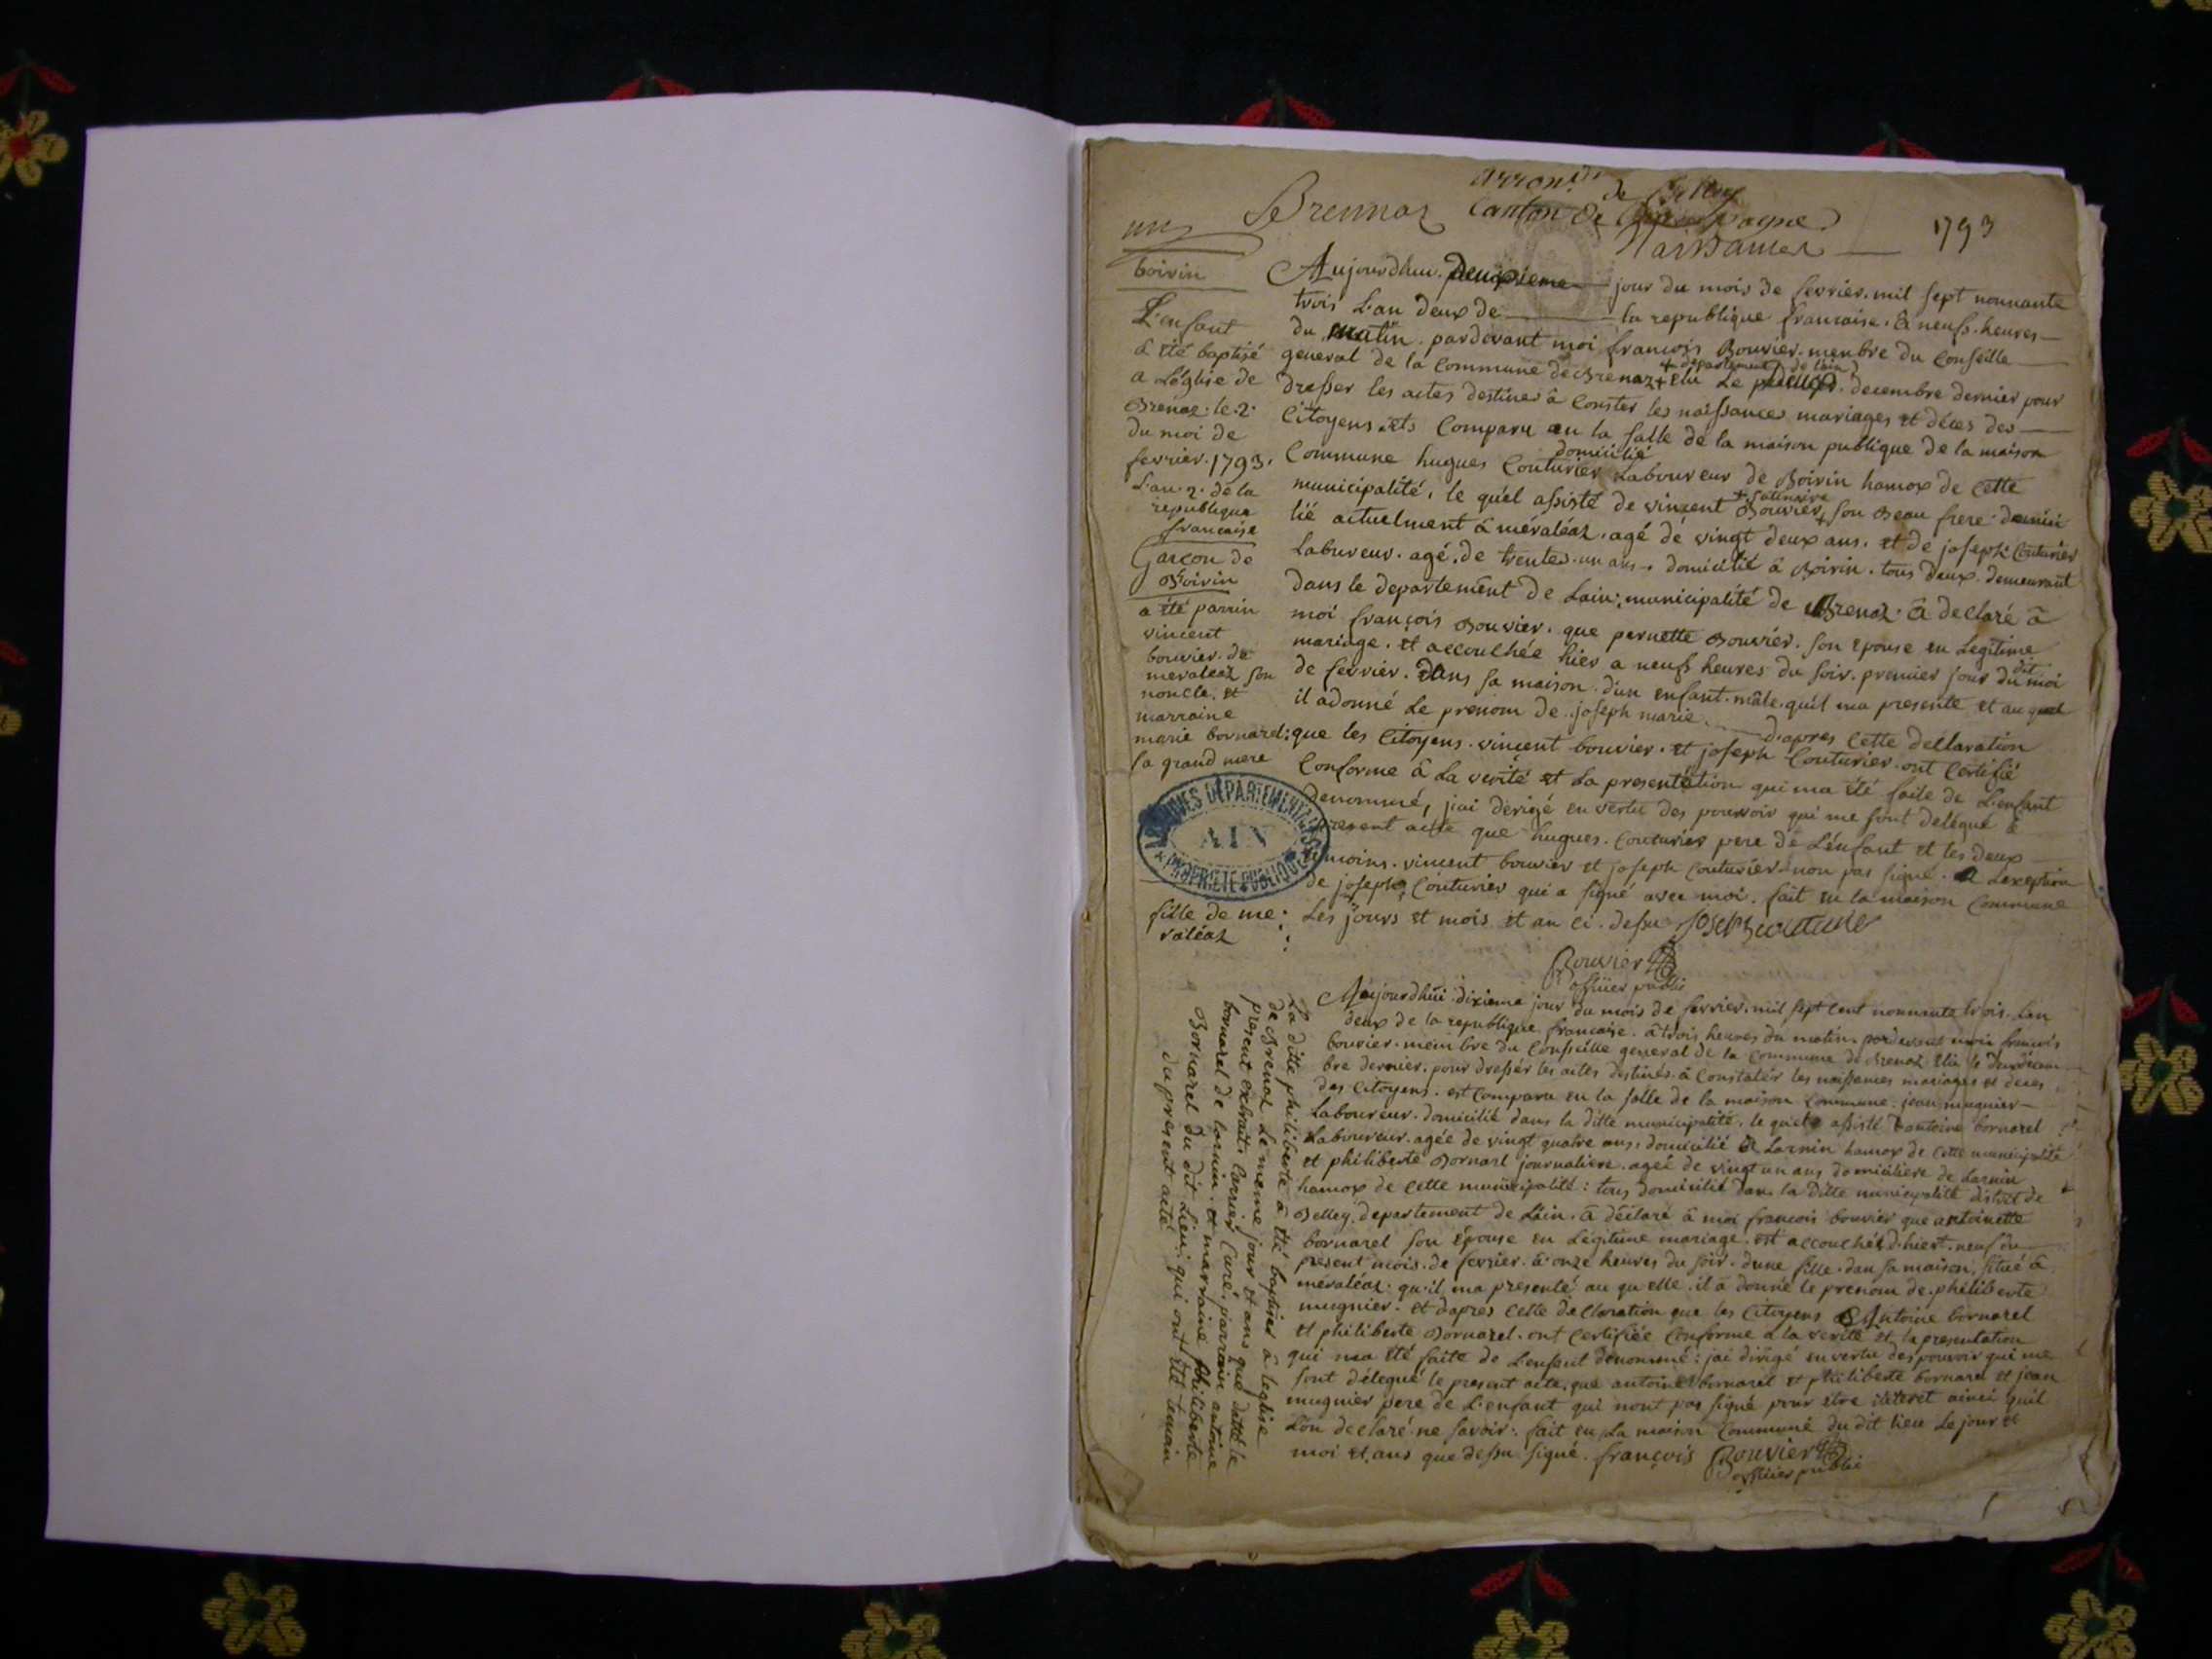 arron.t de Belley
Brennaz Canton de Champagne 1793
Naissances
un
boivin
L'enfant
â été baptisé
a L'église de
Brénaz. le. 2.
du moi de
fevrier. 1793.
L'an. 2. de la
republique
francaise
Garcon de
Boivin
a été parrin
vincent
bouvier. de
mevaléaz son
noncle. et
marraine
marie bornarel:
sa grand mere
Aujourdhui. deuxieme jour du mois de fevrier. mil sept nonnante
trois L'an deux de la republique francaise. â neufs. heures
du matin. pardevant moi francois Bouvier. menbre du Conseille
general de la Commune de Brenaz + elu Le decembre dernier pour
+ departement de l'ain
dresser les actes destines â Conster les naissances mariages et déces des
Citoyens. ets Comparu en la salle de la maison publique de la maison
Commune hugues Couturier Laboureur de Boivin hamox de Cette
domicilié
municipalité, le quel assisté de vincent Bouvier + son Beau frere domici
lié actuelment â mévaléaz. agé de vingt deux ans. et de joseph Couturier
Labureur. agé. de trentes. un ans. domicilié â Boivin. tous deux demeurant
dans le departement de Lain; municipalité de Brenaz. â declaré â
moi françois Bouvier. que pernette Bouvier. son epouse en Legitime
mariage. et accouchée hier a neufs heures du soir. premier jour du dit moi
de fevrier. dans sa maison d'un enfant. mâle. quil ma presenté et au quel
il adonné Le prenom de joseph marie d'apres Cette declaration
que les Citoyens. vincent bouvier. et joseph Couturier. ont Certifié
Conforme â La verité et La presentation qui ma été faite de L'enfant
denommé, jiai derigé en vertu des pouvoir qui me sont delégué le
present acte que hugues. Couturier pere de L'enfant et les deux
temoins. vincent bouvier et joseph Couturier non pas signé. a Lexeption
de joseph Couturier qui a signé avec moi. fait en la maison Commune
Les jours et mois et an ci. desu
Bouvier
officier public
fille de me:
valéaz
La ditte philiberte â été baptisée â leglise
de Brenaz Le meme jour et ans que datté le
present extraits Carrier Curé parrain antoine
bornarel de larnin. et marraine philiberte
Bornarel du dit Lieu. qui ont été temoin
du present acte
Aujourdhüi dixieme jour du mois de fevrier. mil sept Cent nonnante trois. Lan
deux de la republique francaise. â trois heures du matin. pardevant moi francois
bouvier. membre du Conseille general de la Commune de Brenaz elu le deux decem
bre dernier. pour dresser les actes destinés. â Constatér les naissances mariages et deces
des Citoyens. est Comparu en la salle de la maison Commune jean mugnier
Laboureur. domicilié dans la ditte municipalité. le quel assisté d'antoine bornarel
Laboureur. agée de vingt quatre ans, domicilié de Larnin hamox de Cette municipalité
et philiberte Bornarl journaliere. agée de vingt un ans domiciliere de Larnin
hamox de Cette municipalité: tous domicilié dans la ditte municipalité district de
Belley. departement de Lâin. â déclaré â moi francois bouvier que antoinette
bornarel son épouse en Legitime mariage. est accouchée d'hiert. neuf du
present mois. de fevrier. â onze heures du soir. d'une fille. dan sa maison, situé â
mévaléaz. qu'il ma presenté au qu elle. il â donné le prenom de. philiberte
mugnier. et dapres Cette declaration que les Citoyens Antoine bornarel
et philiberte Bornarel. ont Certifiée Conforme a la verité et la presentation
qui ma été faite de L'enfant denommé: jai dirigé en vertu des pouvoir qui me
sont délegué le present acte. que antoine bornarel et philiberte bornarel et jean
mugnier pere de L'enfant qui nont pas signé pour etre ainci quil
L'on declaré ne savoir: fait en La maison Commune du dit lieu Le jour et
moi et. ans que dessu signé. françois Bouvier
officier public
ARCHIVES DÉPARTEMENTALES
AIN
PROPRIÉTÉ PUBLIQUE